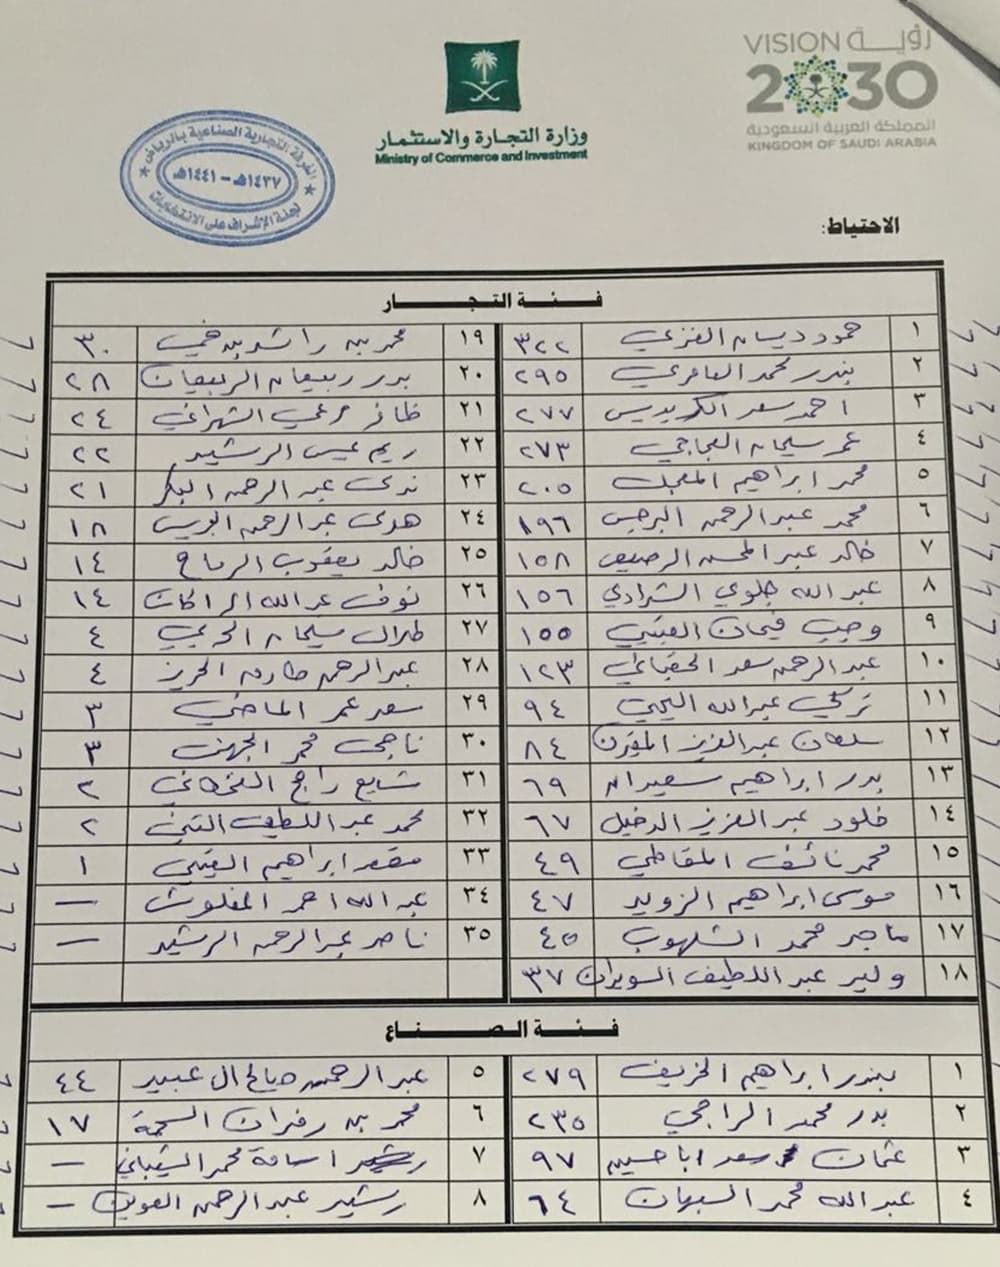 رؤيـــة VISION
2030
المملكة العربية السعودية
KINGDOM OF SAUDI ARABIA
وزارة التجارة والاستثمار
Ministry of Commerce and Investment
الغرفة التجارية الصناعية بالرياض
١٤٣٧هـ - ١٤٤١هـ
لجنة الإشراف على الانتخابات
الاحتياط:
فـئـة التـجـار
١ حمود ديسان العنزي ٣٢٢
١٩ محمد بن راشد بن خمي ٣٠
٢ بندر محمد العامري ٢٩٥
٢٠ بدر ربيعان الربيعان ٢٨
٣ احمد سعد الكريديس ٢٧٧
٢١ ظافر مرعي الشهراني ٢٤
٤ عمر سليمان العجاجي ٢٧٣
٢٢ ريم عيسى الرشيد ٢٢
٥ محمد ابراهيم المعجل ٢٠٥
٢٣ ندى عبد الرحمن البكر ٢١
٦ محمد عبدالرحمن البرجس ١٩٦
٢٤ هدى عبدالرحمن ١٨
٧ خالد عبد المحسن الرصيص ١٥٨
٢٥ خالد يعقوب الرماح ١٤
٨ عبدالله جلوي الشرادي ١٥٦
٢٦ نوف عبدالله الراكان ١٤
٩ وجب فيحان العتيبي ١٥٥
٢٧ طلال سليمان الحربي ٤
١٠ عبدالرحمن سعد الحقباني ١٢٣
٢٨ عبدالرحمن طارق الحريز ٤
١١ تركي عبدالله اليحيى ٩٤
٢٩ سعد عمر الماضي ٣
١٢ سلطان عبدالعزيز المقرن ٨٤
٣٠ ناجي محمد الجهني ٣
١٣ بدر ابراهيم سعيدان ٦٩
٣١ شايع راجح القحطاني ٢
١٤ خلود عبدالعزيز الدخيل ٦٧
٣٢ محمد عبد اللطيف ٢
١٥ محمد نائف المقاطي ٤٩
٣٣ مقعد ابراهيم العتيبي ١
١٦ موسى ابراهيم الزويد ٤٧
٣٤ عبدالله احمد المغلوث —
١٧ ماجد محمد الشلهوب ٤٥
٣٥ ناصر عبدالرحمن الرشيد —
١٨ وليد عبد اللطيف السويدان ٣٧
فـئـة الـصـنـاع
١ بندر ابراهيم الخريف ٢٧٩
٥ عبدالرحمن صالح ال عبيد ٤٤
٢ بدر محمد الراجحي ٢٣٥
٦ محمد بن زفران السحمة ١٧
٣ عثمان سعد اباحسين ٩٧
٧ اسامة محمد الشيباني —
٤ عبدالله محمد السبهان ٦٤
٨ رشيد عبدالرحمن العوين —